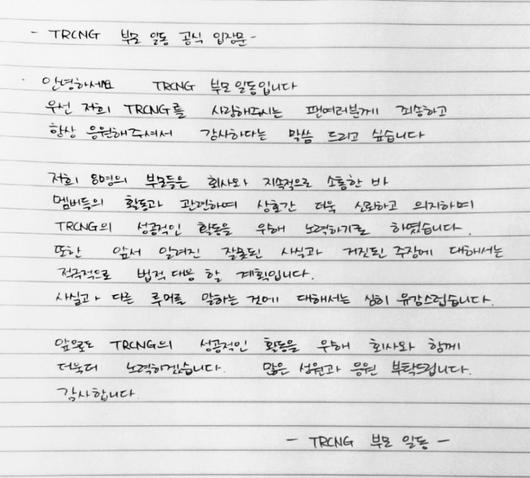 - TRCNG 부모 일동 공식 입장문 -
안녕하세요 TRCNG 부모일동입니다
우선 저희 TRCNG를 사랑해주시는 팬여러분께 죄송하고
항상 응원해주셔서 감사하다는 말씀 드리고 싶습니다
저희 8명의 부모들은 회사와 지속적으로 소통한 바
멤버들의 활동과 관련하여 상호간 더욱 신뢰하고 의지하며
TRCNG의 성공적인 활동을 위해 노력하기로 하였습니다.
또한 앞서 알려진 잘못된 사실과 거짓된 주장에 대해서는
적극적으로 법적대응 할 계획입니다.
사실과 다른 루머를 말하는 것에 대해서는 심히 유감스럽습니다.
앞으로도 TRCNG의 성공적인 활동을 위해 회사와 함께
더욱더 노력하겠습니다. 많은 성원과 응원 부탁드립니다.
감사합니다
- TRCNG 부모 일동 -